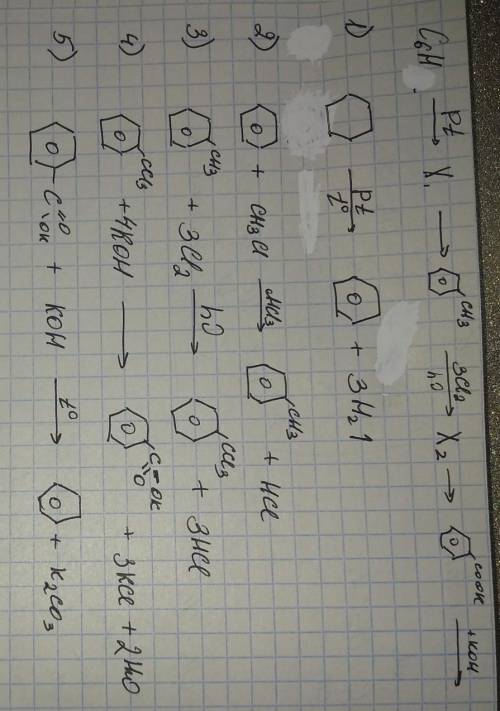 C₆H Pt → X₁ → CH₃ 3Cl₂ hν → X₂ → COOK +KOH →
1) Pt t° → + 3H₂↑
2) + CH₃Cl AlCl₃ → CH₃ + HCl
3) CH₃ + 3Cl₂ hν → CCl₃ + 3HCl
4) CCl₃ + 4KOH → C=OK O + 3KCl + 2H₂O
5) C=O -OK + KOH t° → + K₂CO₃